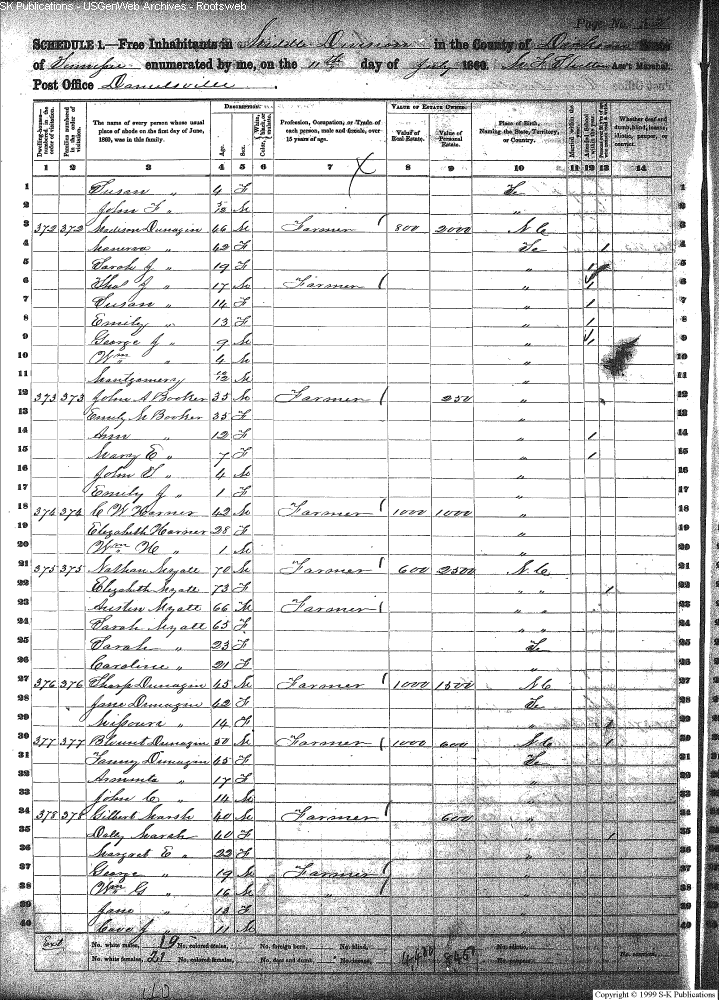 SK Publications - USGenWeb Archives - Rootsweb
Page No.
SCHEDULE 1.—Free Inhabitants in Middle Division in the County of Dickson State
of Tennessee enumerated by me, on the 11th day of July 1860. Ass't Marshal.
Post Office Danielsville.
DESCRIPTION. VALUE OF ESTATE OWNED.
Dwelling-houses—numbered in the order of visitation. Families numbered in the order of visitation. The name of every person whose usual place of abode on the first day of June, 1860, was in this family. Age. Sex. Color, White, black, or mulatto. Profession, Occupation, or Trade of each person, male and female, over 15 years of age. Value of Real Estate. Value of Personal Estate. Place of Birth, Naming the State, Territory, or Country. Married within the year. Attended School within the year. Whether deaf and dumb, blind, insane, idiotic, pauper, or convict.
1 2 3 4 5 6 7 8 9 10 11 12 13 14
1 Susan " 4 F Te 1
2 John F " M " 2
3 372 372 Madison Dunagin 46 M Farmer 800 2000 N C 3
4 Manerva " 42 F Te 1 4
5 Sarah J " 19 F " 1 5
6 Thos J " 17 M Farmer " 1 6
7 Susan " 14 F " 1 7
8 Emily " 13 F " 1 8
9 George J " 9 M " 1 9
10 Wm " 4 M " 10
11 Montgomery M " 11
12 373 373 John A Booker 35 M Farmer 250 " 12
13 Emily M Booker 35 F " 13
14 Ann " 12 F " 1 14
15 Mary E " 7 F " 1 15
16 John S " 4 M " 16
17 Emily J " 1 F " 17
18 374 374 C W Harner 42 M Farmer 1000 1000 " 18
19 Elizabeth Harner 28 F " 19
20 Wm H " 1 M " 20
21 375 375 Nathan Myatt 70 M Farmer 600 2500 N C 21
22 Elizabeth Myatt 73 F " " 1 22
23 Austin Myatt 66 M Farmer " " 23
24 Sarah Myatt 65 F " " 24
25 Sarah " 23 F Te 25
26 Caroline " 21 F " 26
27 376 376 Sharp Dunagin 45 M Farmer 1000 1500 N C 27
28 Jane Dunagin 42 F Te 28
29 Missoura " 14 F " 1 29
30 377 377 Blount Dunagin 50 M Farmer 1000 600 N C 1 30
31 Fanny Dunagin 45 F Te 31
32 Arminta " 17 F " 32
33 John C " 14 M " 33
34 378 378 Gilbert Marsh 40 M Farmer 600 " 34
35 Dolly Marsh 40 F " 1 35
36 Margret E " 22 F " 36
37 George " 19 M Farmer " 37
38 Wm G " 16 M " " 38
39 Jane " 13 F " 39
40 " 11 M " 40
No. white males, 19 No. colored males, No. foreign born, No. blind,
No. white females, 21 No. colored females, No. deaf and dumb, No. insane, 4,400 No. idiotic, No. pauper, No. convicts,
Copyright © 1999 S-K Publications